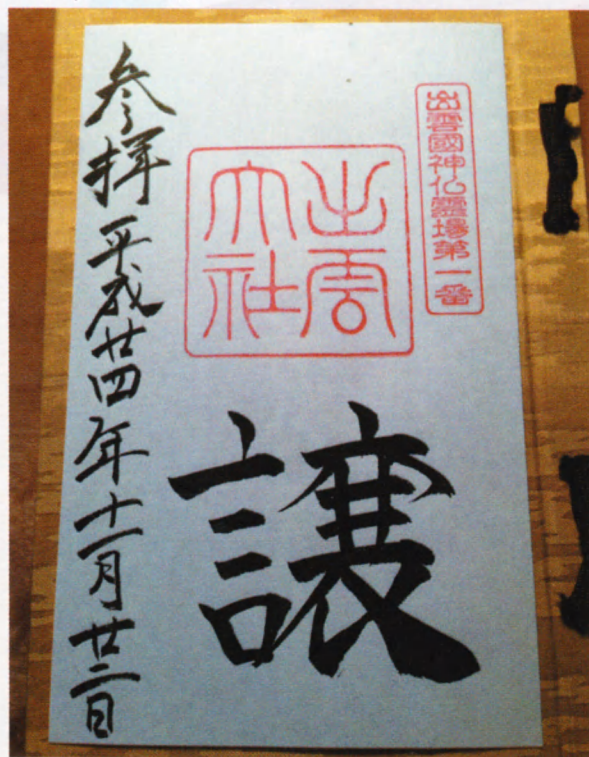 出雲國神仏霊場第一番
出雲
大社
譲
参拝平成廿四年十一月廿二日